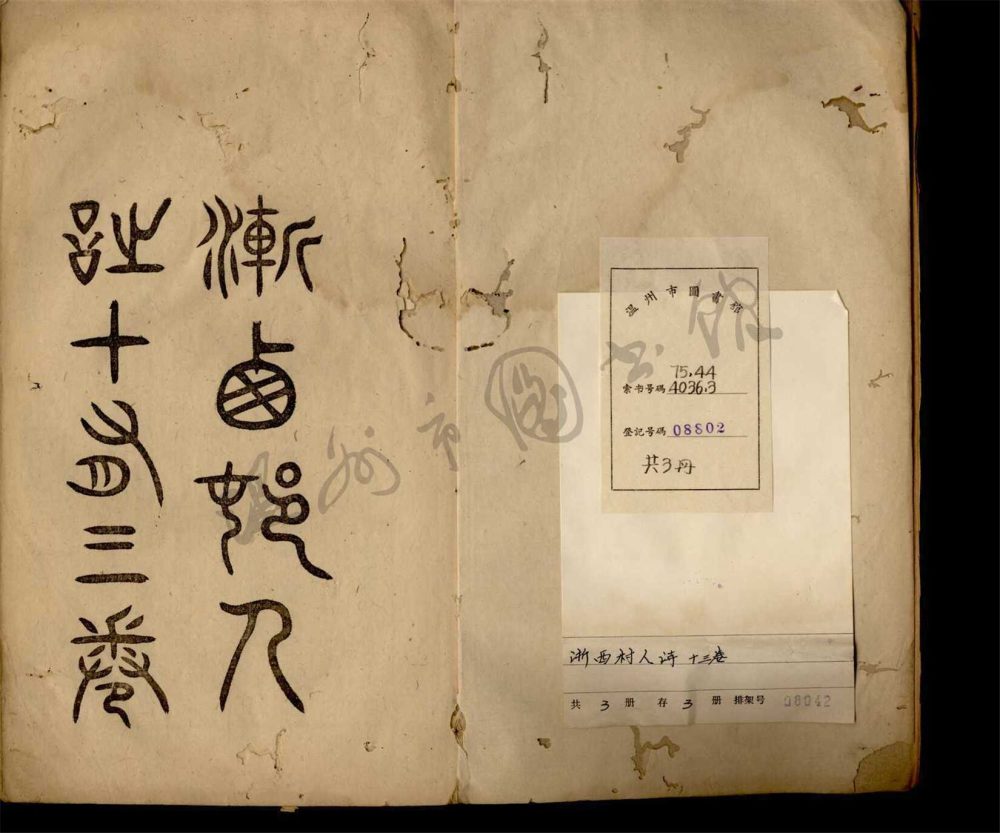 漸西邨人
詩十有三卷
溫州市圖書館
75.44
索书号碼 4036.3
登記号碼 08802
共3册
浙西村人诗 十三卷
共 3 册 存 3 册 排架号 08042
温州市圖书館